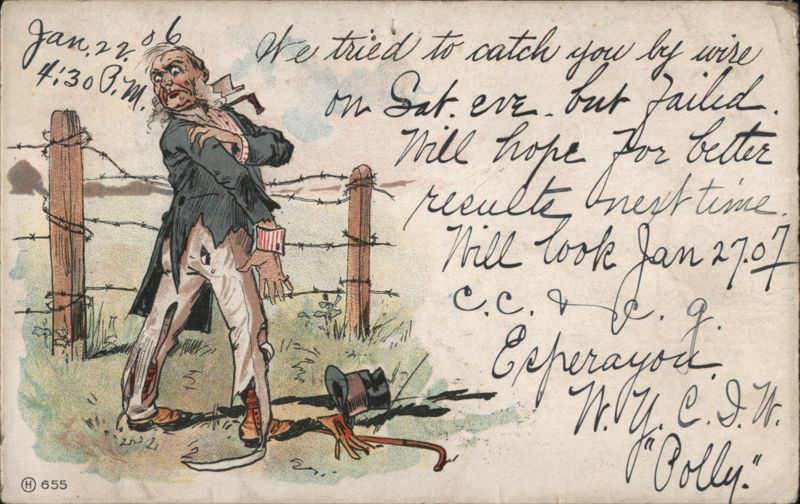 Jan. 22. 06
4:30 P.M.
We tried to catch you by wire
on Sat. eve. but failed.
Will hope for better
results next time.
Will look Jan 27.07
C.C. & c. g.
Esperayou.
W. Y. C. I. W.
"Polly."
H 655